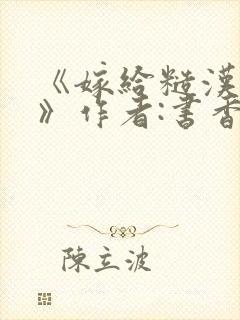 《嫁給糙漢
》作者:書香
陳立波